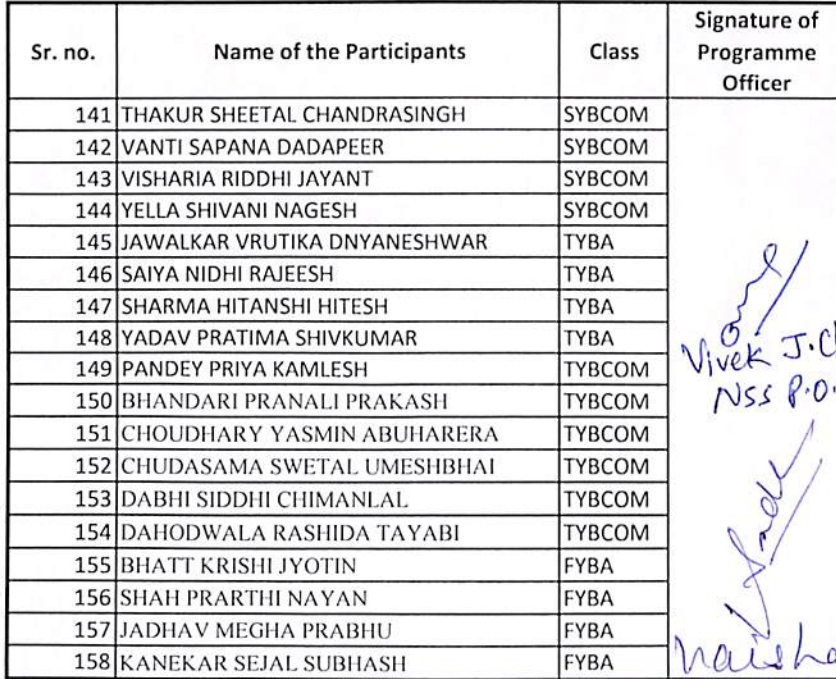 Sr. no. Name of the Participants Class Signature of Programme Officer
141 THAKUR SHEETAL CHANDRASINGH SYBCOM
142 VANTI SAPANA DADAPEER SYBCOM
143 VISHARIA RIDDHI JAYANT SYBCOM
144 YELLA SHIVANI NAGESH SYBCOM
145 JAWALKAR VRUTIKA DNYANESHWAR TYBA
146 SAIYA NIDHI RAJEESH TYBA
147 SHARMA HITANSHI HITESH TYBA
148 YADAV PRATIMA SHIVKUMAR TYBA
149 PANDEY PRIYA KAMLESH TYBCOM
Vivek J.
150 BHANDARI PRANALI PRAKASH TYBCOM
NSS P.O.
151 CHOUDHARY YASMIN ABUHARERA TYBCOM
152 CHUDASAMA SWETAL UMESHBHAI TYBCOM
153 DABHI SIDDHI CHIMANLAL TYBCOM
154 DAHODWALA RASHIDA TAYABI TYBCOM
155 BHATT KRISHI JYOTIN FYBA
156 SHAH PRARTHI NAYAN FYBA
157 JADHAV MEGHA PRABHU FYBA
158 KANEKAR SEJAL SUBHASH FYBA